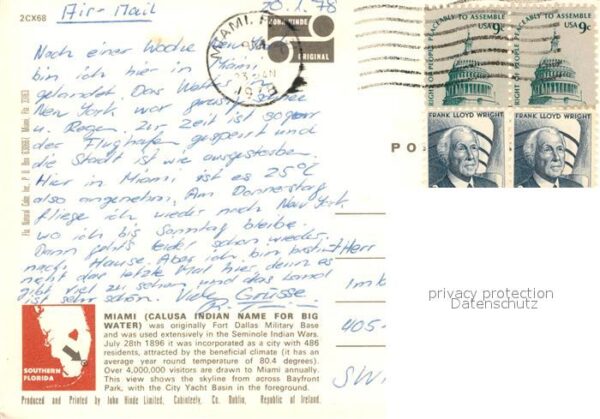 Air-Mail
20.1.78
2CX68
JOHN HINDE
ORIGINAL
MIAMI, FL
1978
RIGHT OF PEOPLE PEACEABLY TO ASSEMBLE
USA 9c
PEACEABLY TO ASSEMBLE
USA 9c
FRANK LLOYD WRIGHT
FRANK LLOYD WRIGHT
Nach einer Woche New York
bin ich hier in Miami
gelandet. Das Wetter in
New York war Schnee
u. Regen. Zur Zeit ist sogar
der Flughafen gesperrt und
die Stadt ist wie ausgestorben.
Hier in Miami ist es 25°C
also angenehm. Am Donnerstag
fliege ich wieder nach New York,
wo ich bis Sonntag bleibe.
Dann geht's leider schon wieder
nach Hause. Aber ich bin bestimmt
nicht das letzte Mal hier denn es
gibt viel zu sehen und das Land
ist sehr schön. Viele Grüsse
Herr
Imk
405-
SW
PO
privacy protection
Datenschutz
SOUTHERN
FLORIDA
MIAMI (CALUSA INDIAN NAME FOR BIG
WATER) was originally Fort Dallas Military Base
and was used extensively in the Seminole Indian Wars.
July 28th 1896 it was incorporated as a city with 486
residents, attracted by the beneficial climate (it has an
average year round temperature of 80.4 degrees).
Over 4,000,000 visitors are drawn to Miami annually.
This view shows the skyline from across Bayfront
Park, with the City Yacht Basin in the foreground.
Produced and Printed by John Hinde Limited, Cabinteely, Co. Dublin, Republic of Ireland.